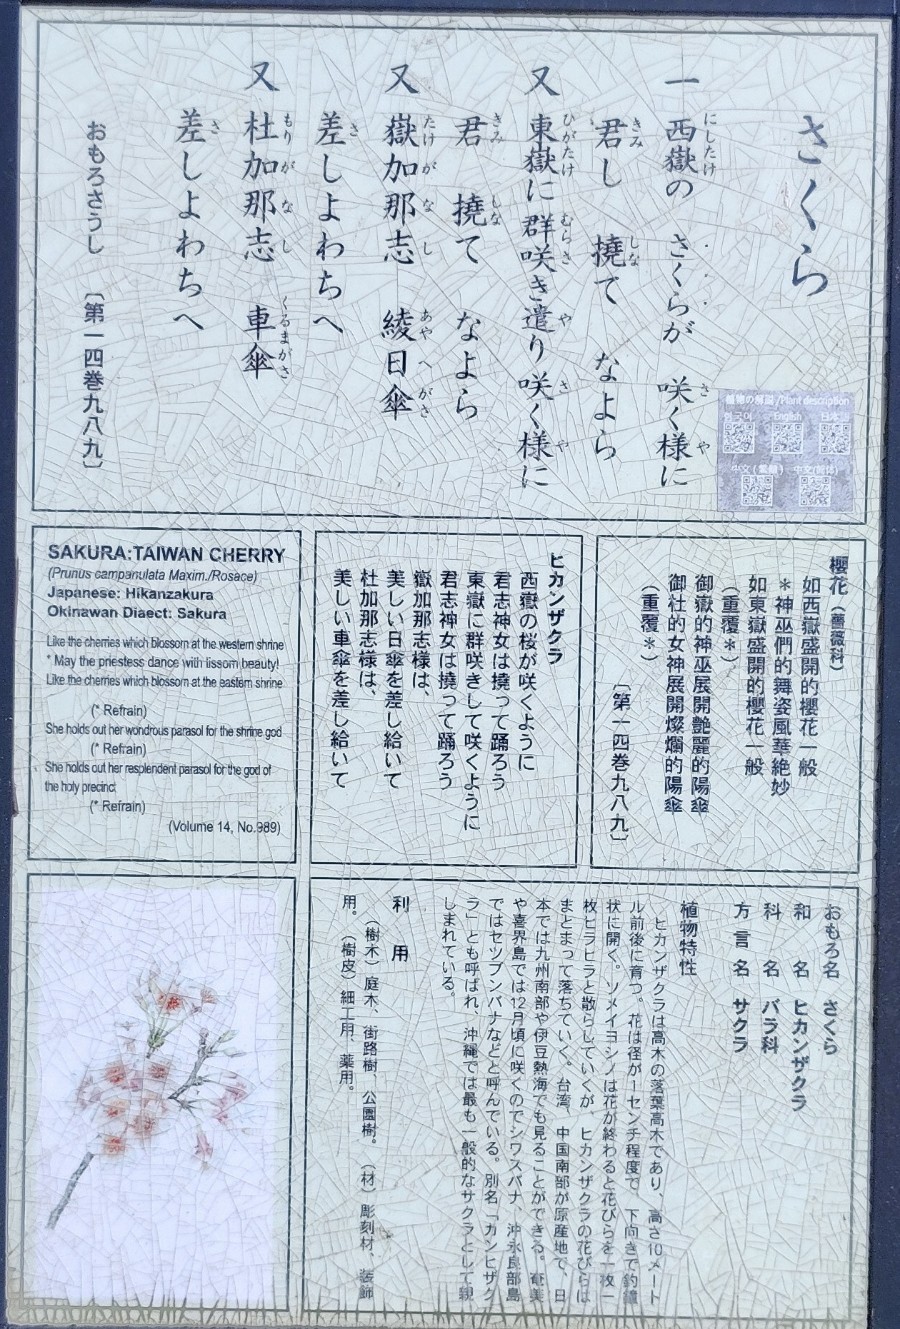 さくら
一 西嶽の さくらが 咲く様に
にしたけ さ や
君し 撓て なよら
きみ しな
又 東嶽に 群咲き遣り 咲く様に
ひがたけ むらさ や さ や
君 撓て なよら
きみ しな
又 嶽加那志 綾日傘
たけがなし あやへがさ
差しよわちへ
さ
又 杜加那志 車傘
もりがなし くるまがさ
差しよわちへ
さ
おもろさうし 〔第一四巻九八九〕
植物の解説/Plant description
한국어 English 日本語
中文(繁體) 中文(简体)
櫻花(薔薇科)
如西嶽盛開的櫻花一般
*神巫們的舞姿風華絶妙
如東嶽盛開的櫻花一般
(重覆*)
御嶽的神巫展開艶麗的陽傘
御杜的女神展開燦爛的陽傘
(重覆*)
〔第一四巻九八九〕
ヒカンザクラ
西嶽の桜が咲くように
君志神女は撓って踊ろう
東嶽に群咲きして咲くように
君志神女は撓って踊ろう
嶽加那志様は、
美しい日傘を差し給いて
杜加那志様は、
美しい車傘を差し給いて
SAKURA:TAIWAN CHERRY
(Prunus campanulata Maxim./Rosace)
Japanese: Hikanzakura
Okinawan Diaect: Sakura
Like the cherries which blossom at the western shrine
* May the priestess dance with lissom beauty!
Like the cherries which blossom at the eastern shrine
(* Refrain)
She holds out her wondrous parasol for the shrine god
(* Refrain)
She holds out her resplendent parasol for the god of
the holy precinct
(* Refrain)
(Volume 14, No.989)
おもろ名 さくら
和名 ヒカンザクラ
科名 バラ科
方言名 サクラ
植物特性
ヒカンザクラは高木の落葉高木であり、高さ10メート
ル前後に育つ。花は径が1センチ程度で、下向きで釣鐘
状に開く。ソメイヨシノは花が終わると花びらを一枚一
枚ヒラヒラと散らしていくが、ヒカンザクラの花びらは
まとまって落ちていく。台湾、中国南部が原産地で、日
本では九州南部や伊豆熱海でも見ることができる。奄美
や喜界島では12月頃に咲くのでシワスバナ、沖永良部島
ではセツブンバナなどと呼んでいる。別名「カンヒザク
ラ」とも呼ばれ、沖縄では最も一般的なサクラとして親
しまれている。
利用
(樹木)庭木、街路樹、公園樹。 (材)彫刻材、装飾
用。(樹皮)細工用、薬用。